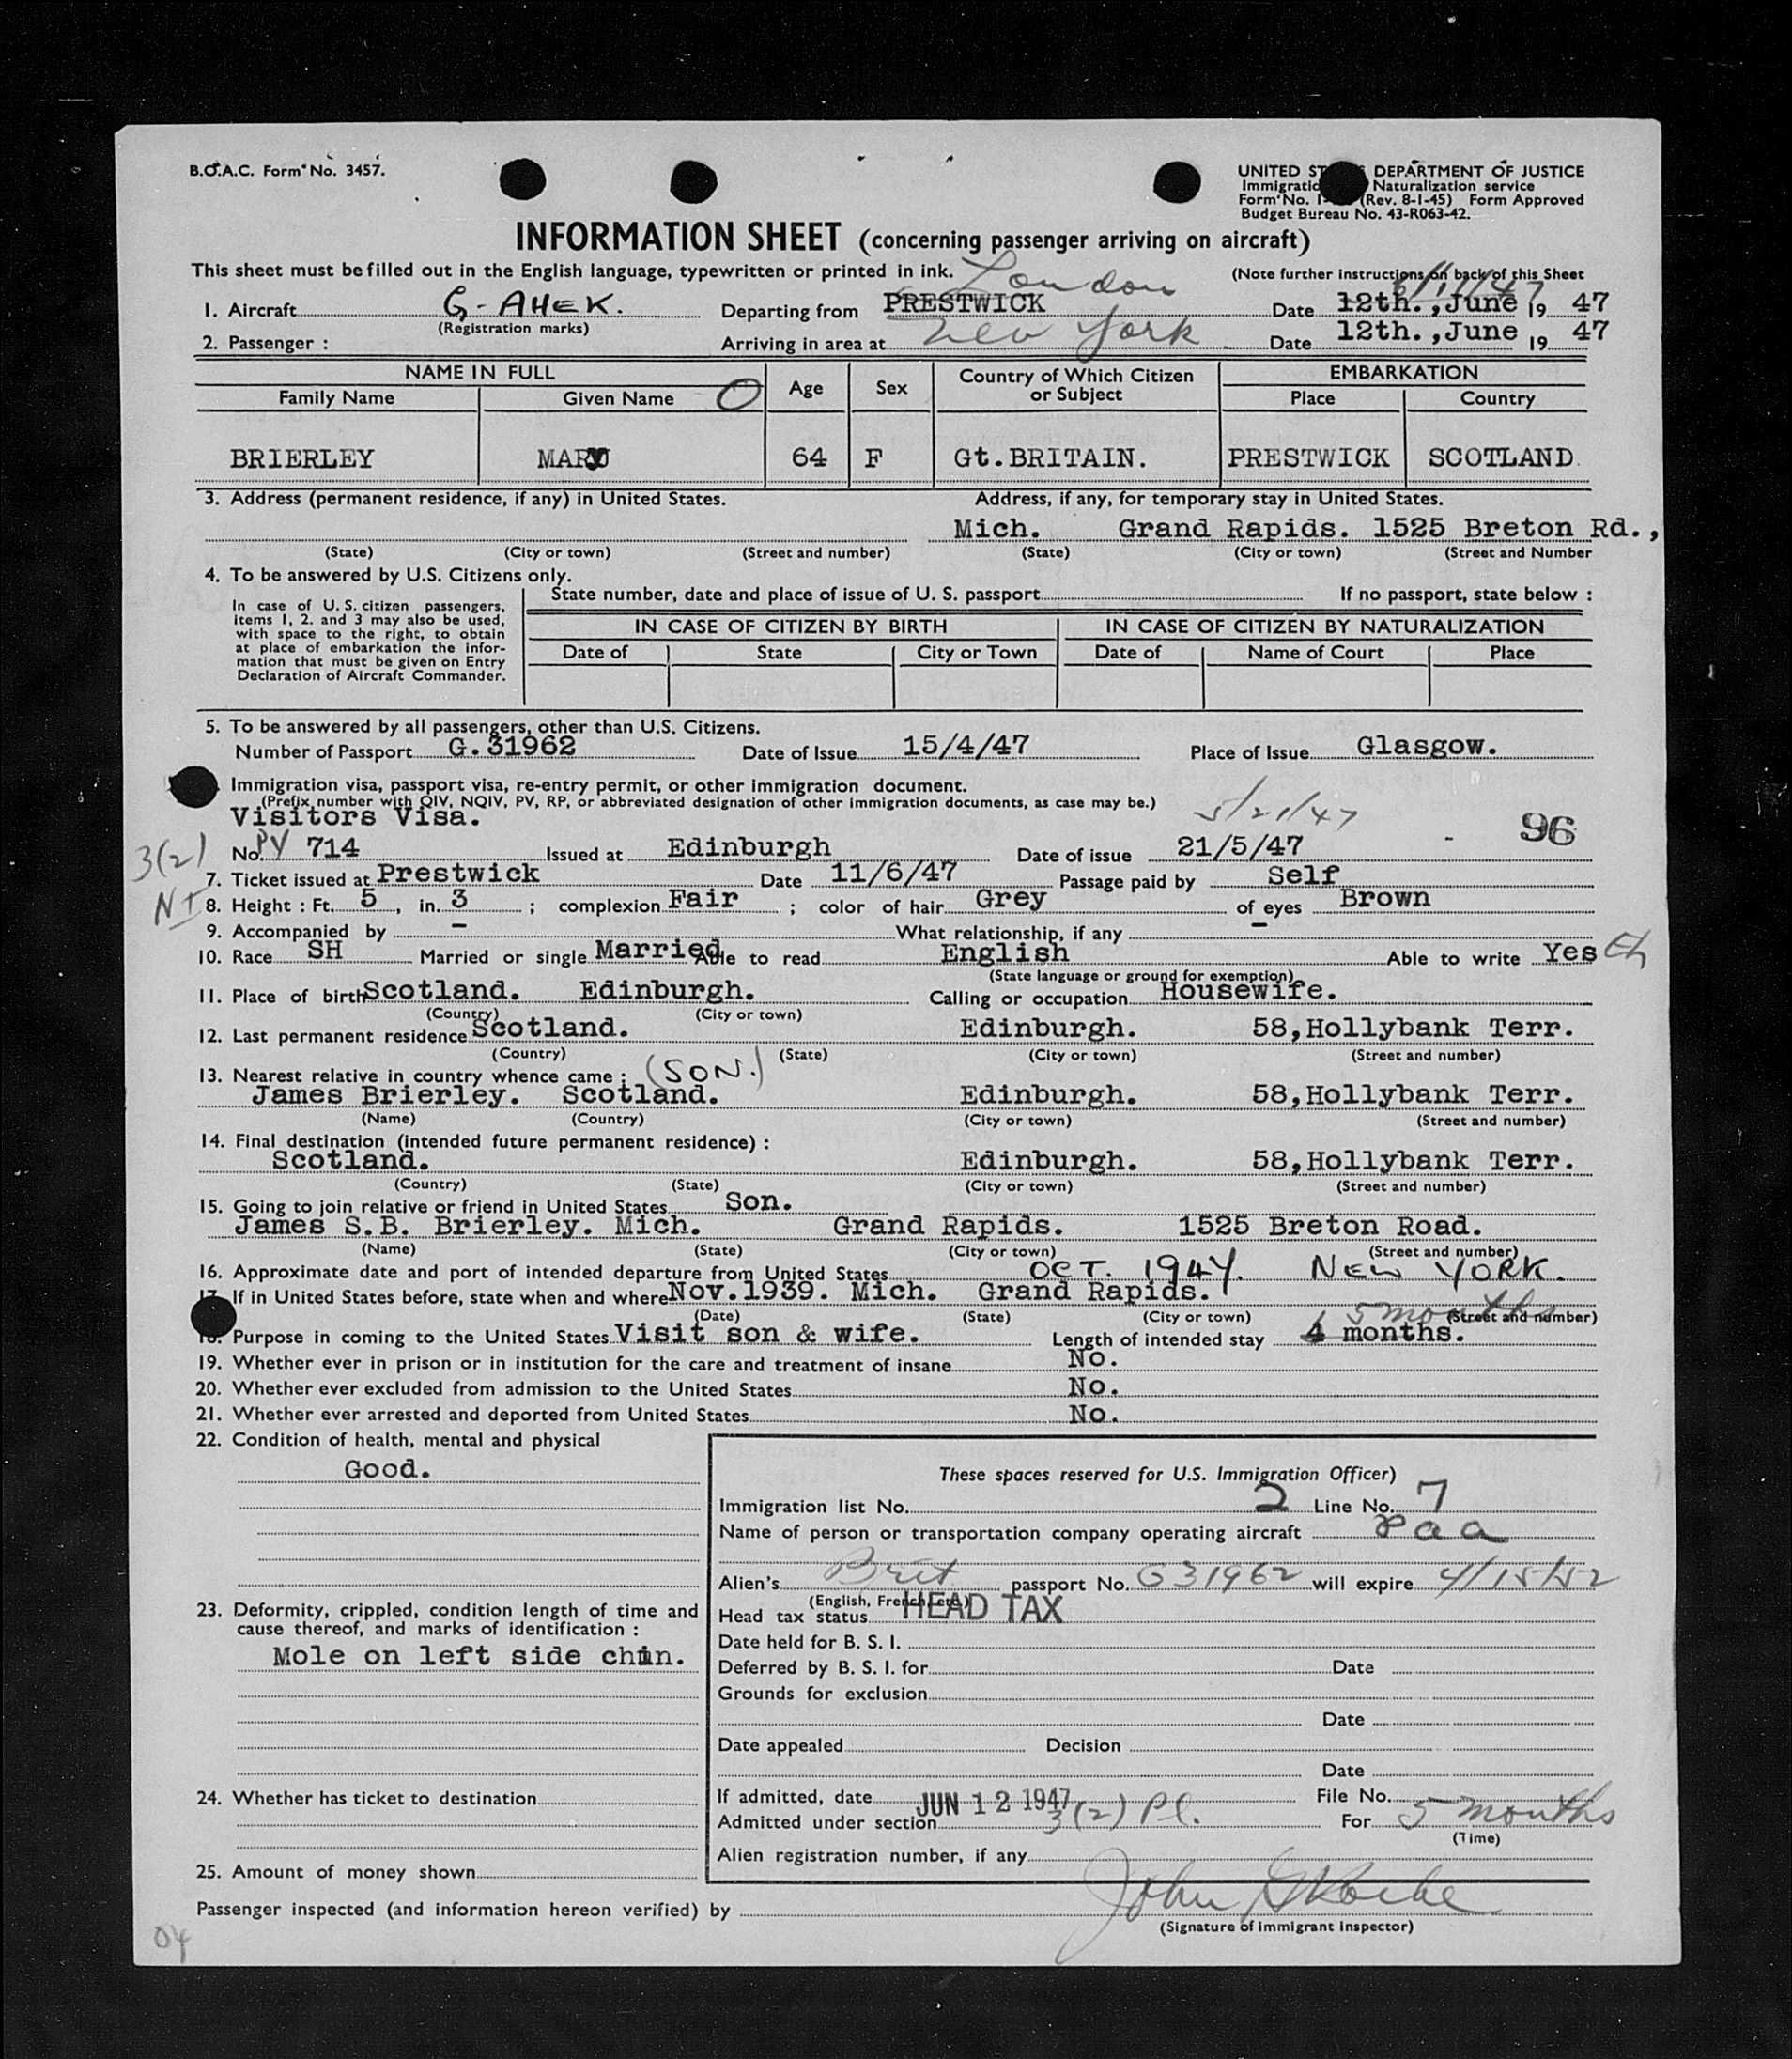 B.O.A.C. Form No. 3457.
UNITED ST DEPARTMENT OF JUSTICE
Immigratio Naturalization service
Form No. I- (Rev. 8-1-45) Form Approved
Budget Bureau No. 43-R063-42.
INFORMATION SHEET (concerning passenger arriving on aircraft)
This sheet must be filled out in the English language, typewritten or printed in ink. (Note further instructions on back of this Sheet
London 6/11/47
1. Aircraft G-AHEK. Departing from PRESTWICK Date 12th.,June 19 47
(Registration marks)
2. Passenger : Arriving in area at New York Date 12th.,June 19 47
NAME IN FULL Age Sex Country of Which Citizen or Subject EMBARKATION
Family Name Given Name Place Country
BRIERLEY MARY 64 F Gt.BRITAIN. PRESTWICK SCOTLAND.
3. Address (permanent residence, if any) in United States. Address, if any, for temporary stay in United States.
Mich. Grand Rapids. 1525 Breton Rd.,
(State) (City or town) (Street and number) (State) (City or town) (Street and Number
4. To be answered by U.S. Citizens only.
State number, date and place of issue of U. S. passport If no passport, state below :
In case of U. S. citizen passengers,
items 1, 2. and 3 may also be used,
with space to the right, to obtain
at place of embarkation the infor-
mation that must be given on Entry
Declaration of Aircraft Commander.
IN CASE OF CITIZEN BY BIRTH IN CASE OF CITIZEN BY NATURALIZATION
Date of State City or Town Date of Name of Court Place
5. To be answered by all passengers, other than U.S. Citizens.
Number of Passport G.31962 Date of Issue 15/4/47 Place of Issue Glasgow.
Immigration visa, passport visa, re-entry permit, or other immigration document.
(Prefix number with QIV, NQIV, PV, RP, or abbreviated designation of other immigration documents, as case may be.)
Visitors Visa. 5/21/47 96
3(2) No. PV 714 Issued at Edinburgh Date of issue 21/5/47
7. Ticket issued at Prestwick Date 11/6/47 Passage paid by Self
NI 8. Height : Ft. 5, in. 3 ; complexion Fair ; color of hair Grey of eyes Brown
9. Accompanied by - What relationship, if any -
10. Race SH Married or single Married Able to read English Able to write Yes
(State language or ground for exemption)
11. Place of birth Scotland. Edinburgh. Calling or occupation Housewife.
(Country) (City or town)
12. Last permanent residence Scotland. Edinburgh. 58,Hollybank Terr.
(Country) (State) (City or town) (Street and number)
13. Nearest relative in country whence came : (SON.)
James Brierley. Scotland. Edinburgh. 58,Hollybank Terr.
(Name) (Country) (City or town) (Street and number)
14. Final destination (intended future permanent residence) :
Scotland. Edinburgh. 58,Hollybank Terr.
(Country) (State) (City or town) (Street and number)
15. Going to join relative or friend in United States Son.
James S.B. Brierley. Mich. Grand Rapids. 1525 Breton Road.
(Name) (State) (City or town) (Street and number)
16. Approximate date and port of intended departure from United States OCT. 1947. NEW YORK.
17. If in United States before, state when and where Nov.1939. Mich. Grand Rapids.
(Date) (State) (City or town) (Street and number)
5 months
18. Purpose in coming to the United States Visit son & wife. Length of intended stay 4 months.
19. Whether ever in prison or in institution for the care and treatment of insane No.
20. Whether ever excluded from admission to the United States No.
21. Whether ever arrested and deported from United States No.
22. Condition of health, mental and physical
Good.
These spaces reserved for U.S. Immigration Officer)
Immigration list No. 2 Line No. 7
Name of person or transportation company operating aircraft paa
Alien's Brit passport No. G31962 will expire 4/15/52
(English, French, etc.)
23. Deformity, crippled, condition length of time and
cause thereof, and marks of identification :
Mole on left side chin.
Head tax status HEAD TAX
Date held for B. S. I.
Deferred by B. S. I. for Date
Grounds for exclusion
Date
Date appealed Decision
Date
24. Whether has ticket to destination
If admitted, date JUN 12 1947 File No.
Admitted under section 3(2) Pl. For 5 months
(Time)
Alien registration number, if any
25. Amount of money shown
Passenger inspected (and information hereon verified) by John
(Signature of Immigrant Inspector)
04